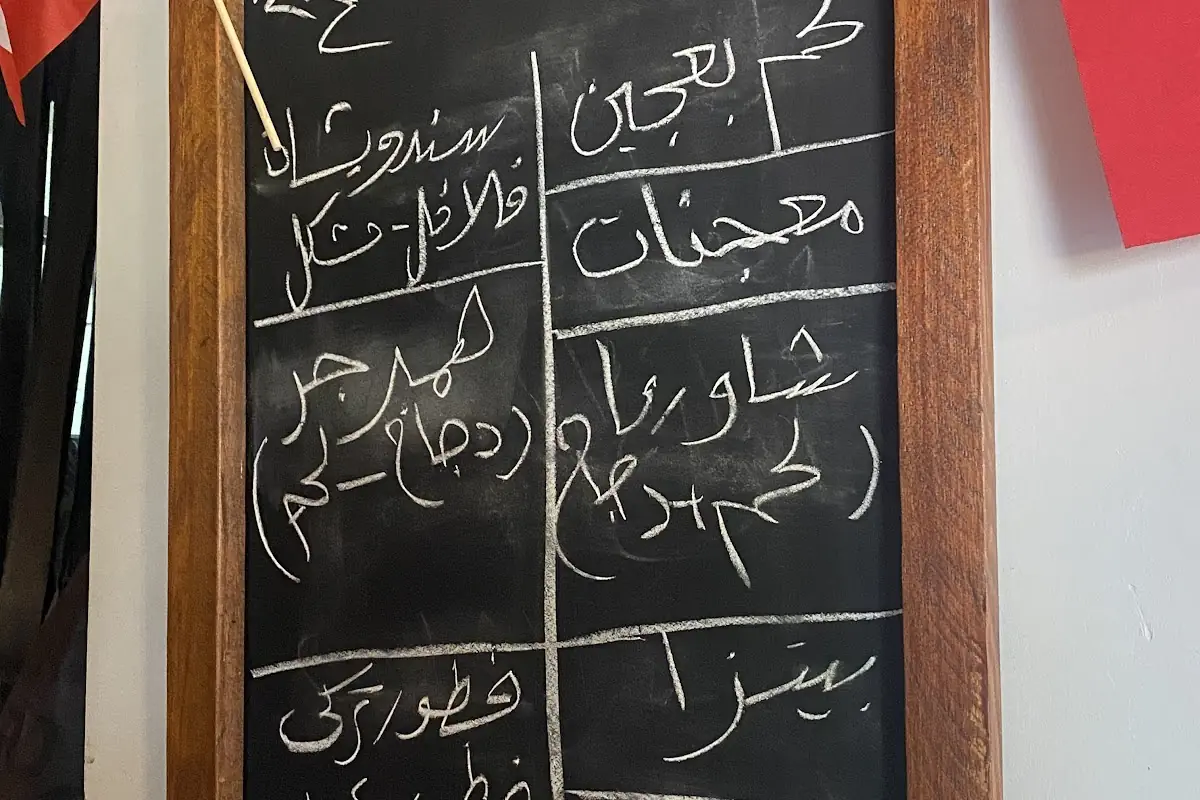 لحم بعجين
معجنات
شاورما
(لحم + دجاج)
بيتزا
سندويشات
فلافل - شكل
همبرجر
(دجاج - لحم)
فطور تركي